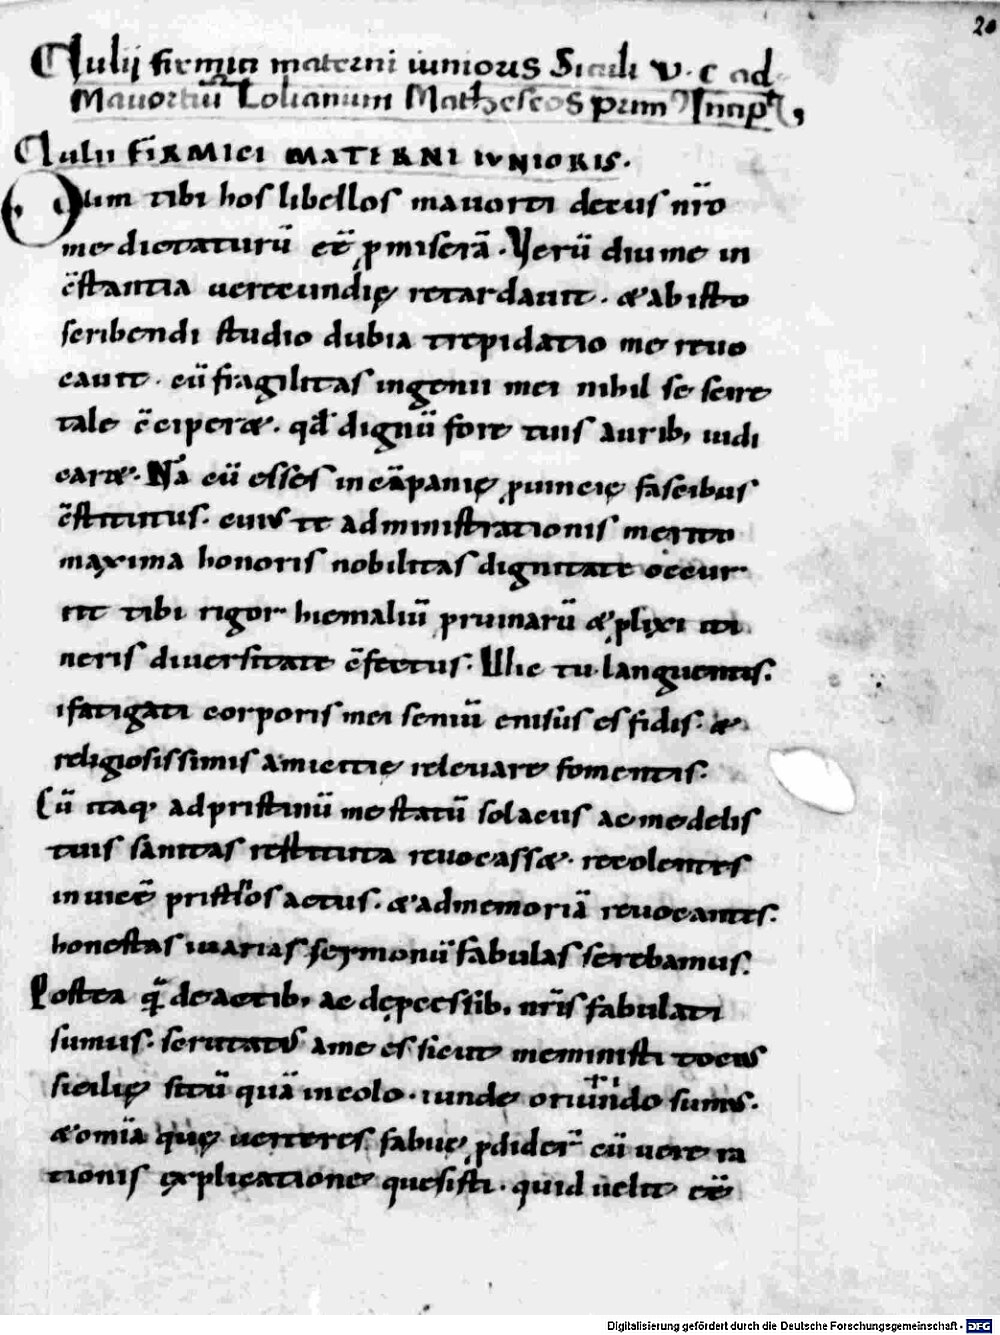 20
Iulij firmici materni iunioris Siculi v. c. ad
Mauortiū Lolianum Matheseos prim⁹ Incipt,
Iulii FIRMICI MATERNI IVNIORIS.
Olim tibi hos libellos mauorti decus nr̄o
me dictaturū eē p̱miserā. Verū diu me in
c̄stantia uerecundię retardauit. & ab isto
scribendi studio dubia trepidatio me reuo
cauit. cū fragilitas ingenii mei nihil se scire
tale c̄ciper&. qd̄ dignū fore tuis aurib, iudi
car&. Nā cū esses in cāpanię puincię fascibus
c̄stitutus. cuius te administrationis merito
maxima honoris nobilitas dignitate occur
rit tibi rigor hiemaliū pruinarū & plixi iti
neris diuersitate c̄fectus. Illic tu languentis.
ifatigati corporis mei seniū enisus es fidis. &
religiosissimis amicitię releuare fomentis.
Cū itaq, ad pristinū me statū solacus ac medelis
tuis sanitas restituta reuocass&. recolentes
in uicē pristīos actus. & ad memoriā reuocantes.
honestas iuarias sermonū fabulas serebamus.
Postea q̄ de actib, ac dep̱cessib, nr̄is fabulati
sumus. scrutatus a me es sicut meministi tocius
sicilię sitū quā incolo. iunde oriundo sums.
& omīa quę ueteres fabuę p̱dider̄ cū uere ra
tionis explicatione quesisti. quid uelit eē
Digitalisierung gefördert durch die Deutsche Forschungsgemeinschaft - DFG